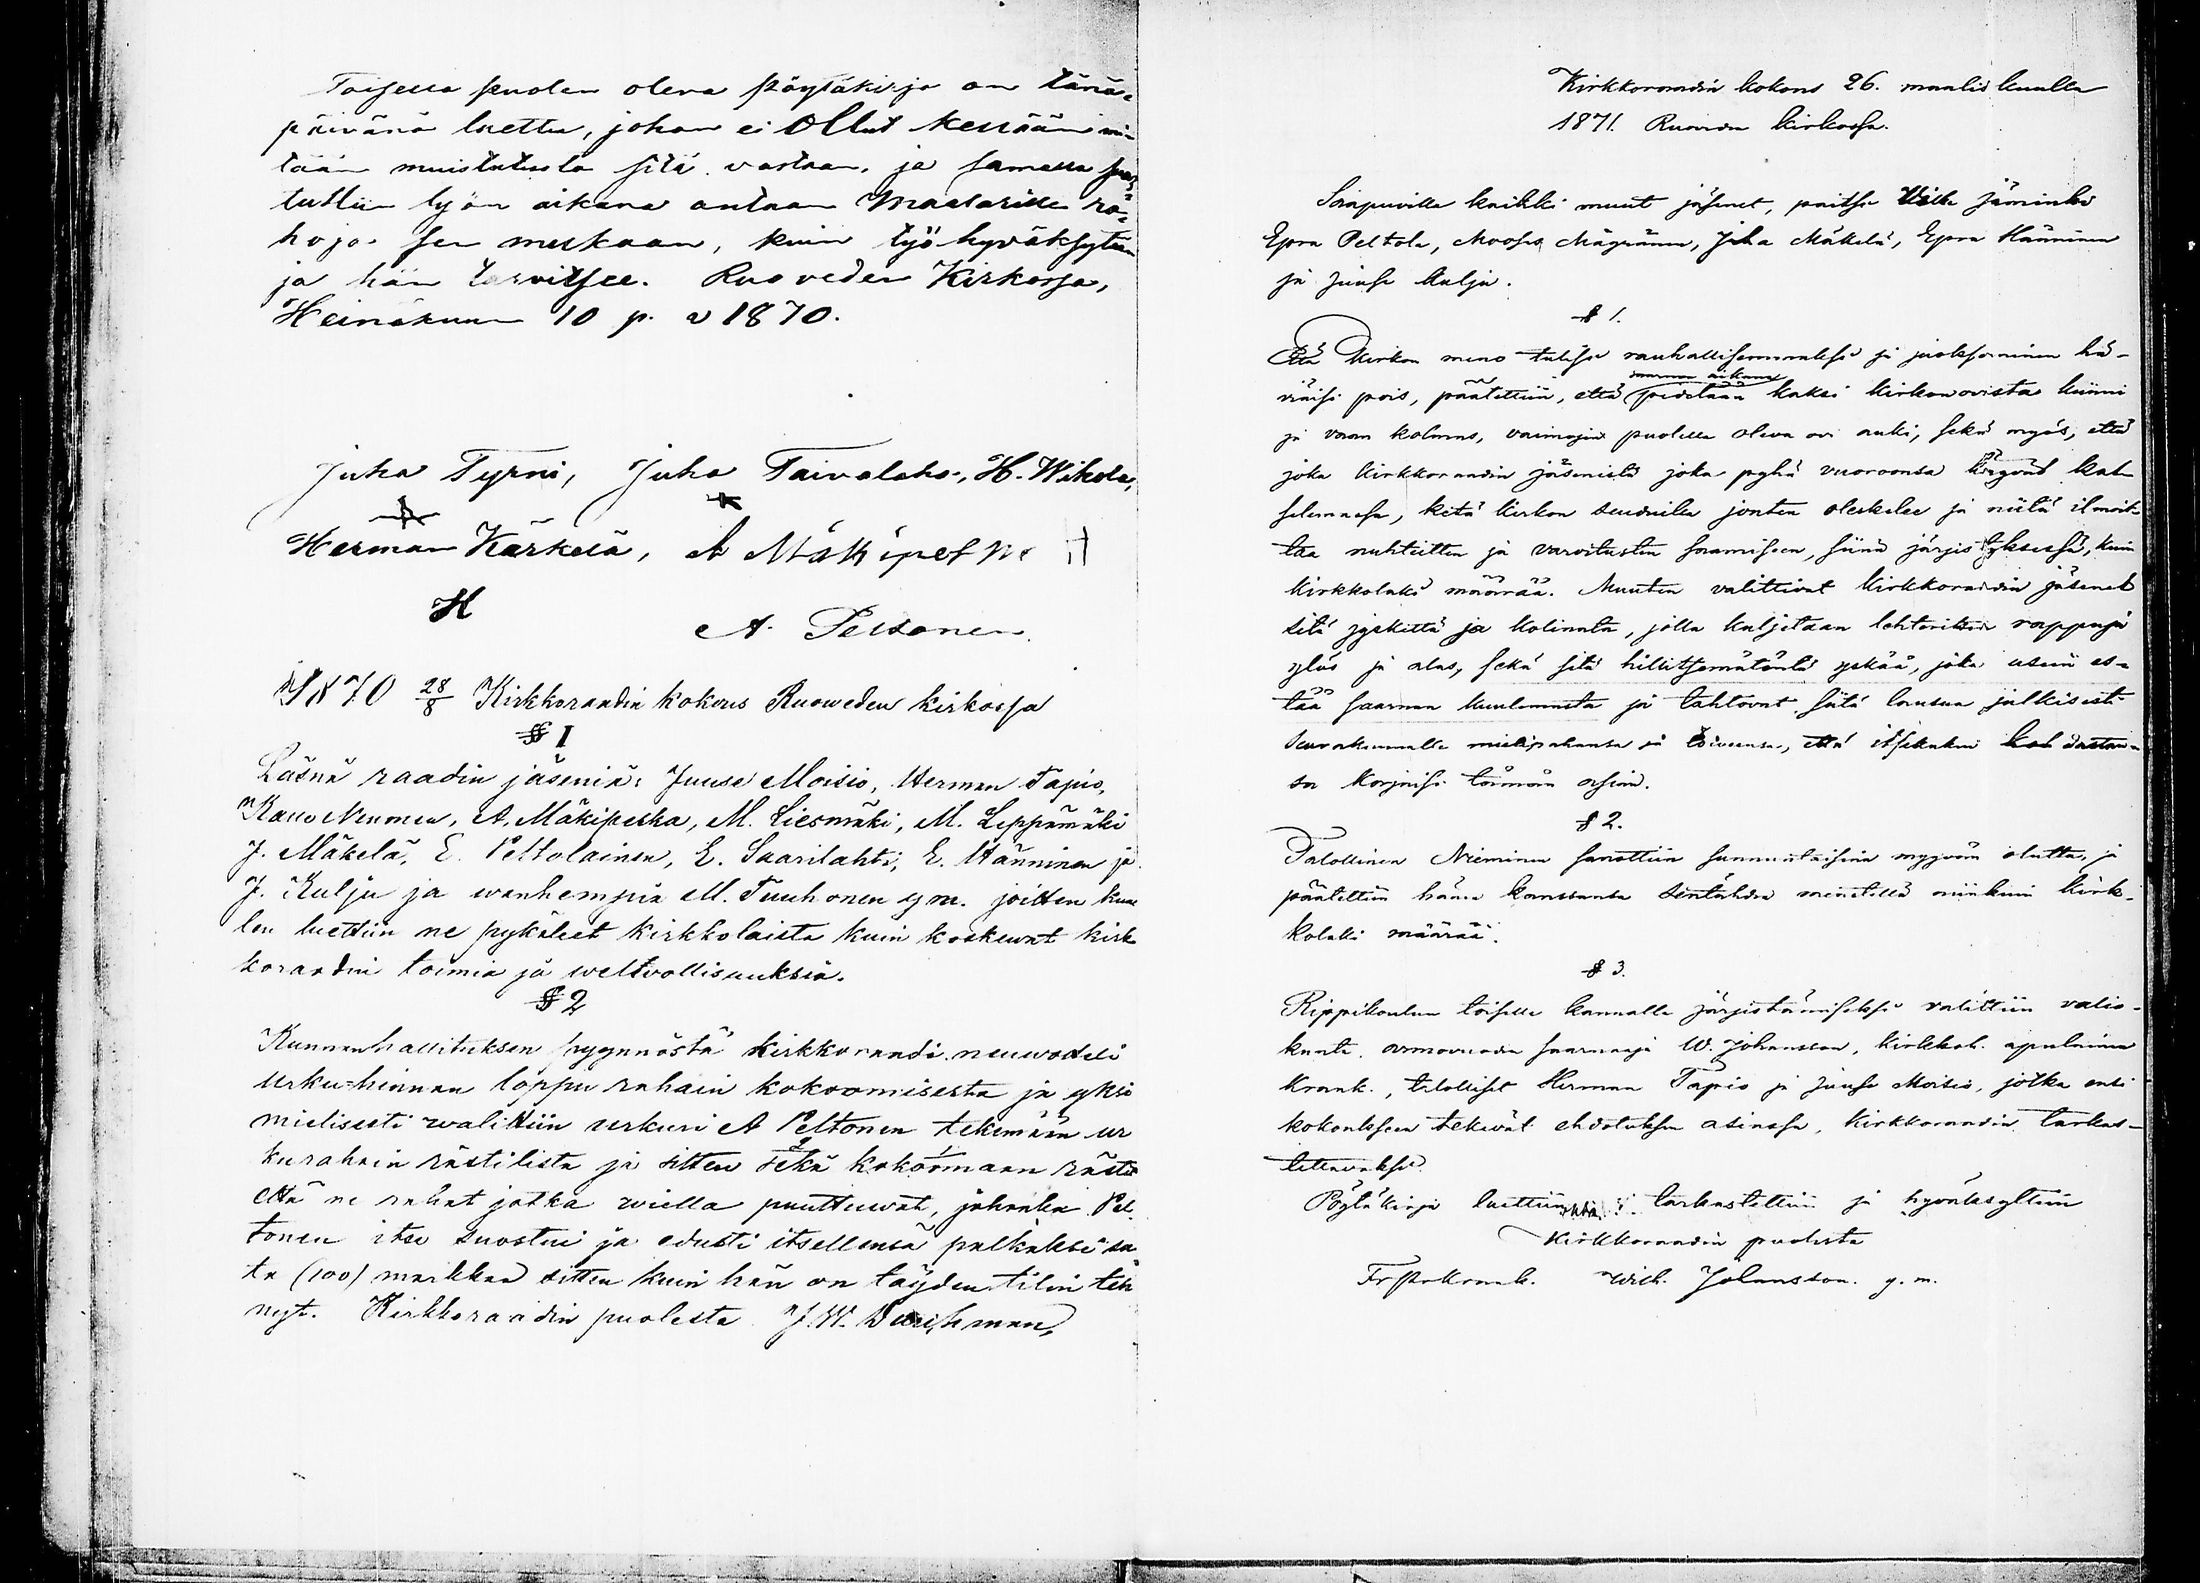 Toisella puolen oleva pöytäkirja on tänä-
päivänä luettu, johon ei ollut kellään mi-
tään muistutusta sitä vastaan, ja samalla suos-
tuttiin työn aikana antaan Maalarille ra-
hoja sen mukaan, kuin työ hyväksytään
ja hän tarvitsee. Ruoveden Kirkossa,
Heinäkuun 10 p. v 1870.
Juha Tyrni, Juho Taivalaho, H. Wihola,
Herman Kärkelä, A Mäkipeska H
H A. Peltonen.
1870 28/8 Kirkkoraadin kokous Ruoweden kirkossa
§ I
Läsnä raadin jäseniä: Juuse Moisio, Herman Tapio,
Nenonen, A. Mäkipeska, M. Liesmäki, M. Leppämäki
J. Mäkelä, E. Peltolainen, E. Saarilahti, E. Hänninen ja
J. Kulju ja wanhempia M. Tuuhonen ym. joitten kuul
len luettiin ne pykäleet kirkkolaista kuin koskewat kirk
koraadin toimia ja welwollisuuksia.
§ 2
Kunnanhallituksen pyynnöstä kirkkoraadi neuwotteli
urku-hinnan loppu rahain kokoomisesta ja yksi
mielisesti walittiin urkuri A Peltonen tekemään ur
kurahain rästilista ja sitten sekä kokoomaan rästit
että ne rahat jotka wiella puuttuwat, johonka Pel
tonen itse suostui ja edusti itsellensä palkaksi sa
ta (100) markkaa sitten kuin hän on täyden tilin teh
nyt. Kirkkoraadin puolesta J. W. Durchman,
Kirkkoraadin kokous 26. maaliskuulla
1871. Ruoveden kirkossa.
Saapuvilla kaikki muut jäsenet, paitse Ville Jäminki
Epra Peltola, Mooses Mäyränen, Juha Mäkelä, Epra Hänninen
ja Juuse Kulju.
§ 1.
Että kirkon meno tulisi rauhallisemmaksi ja juokseminen hä-
viäisi pois, päätettiin, että saarnan aikana pidetään kaksi kirkonovista kiinni
ja vaan kolmas, vaimojen puolella oleva ovi auki, sekä myös, että
joka kirkkoraadin jäsenistä joka pyhä vuoroonsa käyvät kat-
selemassa, ketä kirkon seuduilla jouten oleskelee ja niitä ilmoit-
taa nuhteitten ja varoitusten saamiseen, siinä järjestyksessä, kuin
kirkkolaki määrää. Muuten valittivat kirkkoraadin jäsenet
sitä jyskettä ja kolinata, jolla kuljetaan lehteritten rappuja
ylös ja alas, sekä sitä hillitsemätöntä yskää, joka usein es-
tää saarnan kuulemista ja tahtovat siitä lausua julkisesti
seurakunnalle mielipahansa ja toiveensa, että itsekukin kohdastan-
sa korjaisi tämän asian.
§ 2.
Talollinen Nieminen sanottiin sunnuntaisina myyvän olutta, ja
päätettiin hänen kanssansa sentähden menetellä niinkuin kirk-
kolaki määrää.
§ 3.
Rippikoulun toiselle kannalle järjestämiseksi valittiin valio-
kunta, armovuoden saarnaaja W. Johansson, kirkkoh. apulainen
Krank, talolliset Herman Tapio ja Juuse Moisio, jotka ensi
kokoukseen tekevät ehdotuksen asiassa, kirkkoraadin tarkas-
tettavaksi.
Pöytäkirja luettiin tarkastettiin ja hyväksyttiin
Kirkkoraadin puolesta
Fr Krank. Wilh. Johansson. y. m.